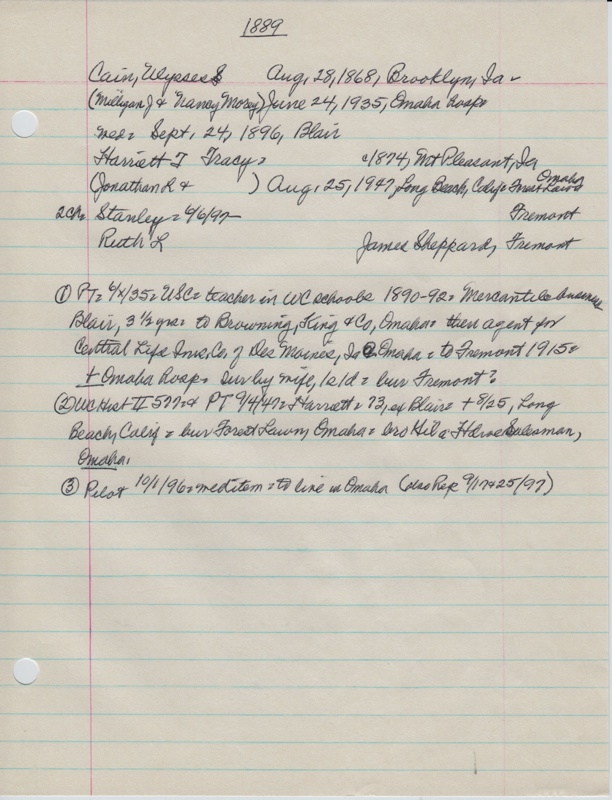 1889
Cain, Ulysses S Aug. 28, 1868, Brooklyn, Ia -
(Milligan J & Nancy Morey) June 24, 1935, Omaha hosp
med = Sept. 24, 1896, Blair
Harriett T Tracy = c1874, Mt Pleasant, Ia
(Jonathan R & ) Aug. 25, 1947, Long Beach, Calif = Forest Lawn Omaha
2ch = Stanley = 4/6/97- Fremont
Ruth L James Sheppard, Fremont
① PT = /35 = USC = teacher in WC schools 1890-92 = Mercantile business
Blair, 3 ½ yrs = to Browning, King & Co, Omaha = then agent for
Central Life Ins. Co. of Des Moines, Ia @ Omaha = to Fremont 1915 =
+ Omaha hosp = sur by wife, 1s 1d = bur Fremont?
② WC Hist II 577 = & PT 9/4/47 = Harriett = 73, ex Blair = + 8/25, Long
Beach, Calif = bur Forest Lawn, Omaha = bro Hil a Salesman,
Omaha.
③ Pilot 10/1/96 = wed item = to live in Omaha (also Rep 9/17 & 25/97)